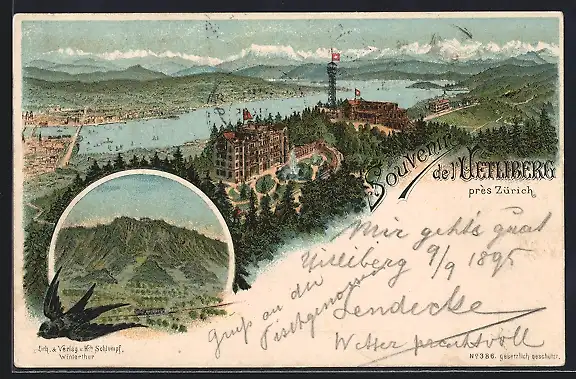 Souvenir
de l'UETLIBERG
près Zürich
Mir geht's gut
Uetliberg 9/9 1895
Gruß an den
Tischgenosse
Lendecke
Wetter prachtvoll
Lith. & Verlag v. Hch Schlumpf,
Winterthur
No 386. Gesetzlich geschützt.